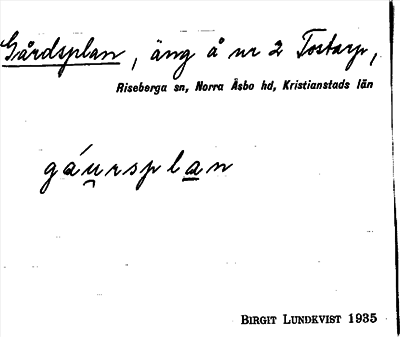 Gårdsplan, äng å nr 2 Tostarp,
Riseberga sn, Norra Åsbo hd, Kristianstads län
gáu̯rspla̲n
BIRGIT LUNDKVIST 1935